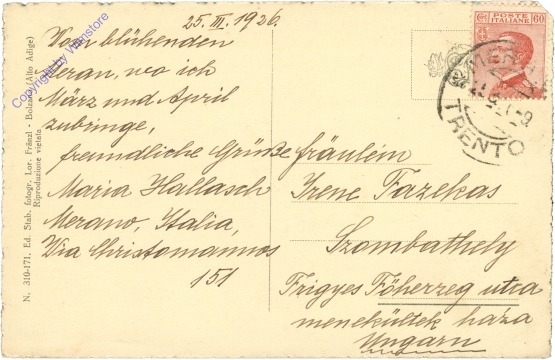 25. III. 1926.
Vom blühenden
Meran, wo ich
März und April
zubringe,
freundliche Grüße
Maria Hallasch
Merano, Italia,
Via Christomannos
151
Fräulein
Irene Fazekas
Szombathely
Frigyes Főherzeg utca
menekültek háza
Ungarn
POSTE
ITALIANE
60
MERA
TRENTO
N. 310-171. Ed. Stab. fotogr. Lor. Fränzl - Bolzano (Alto Adige)
Riproduzione vietata
Copyright by Wähmstore